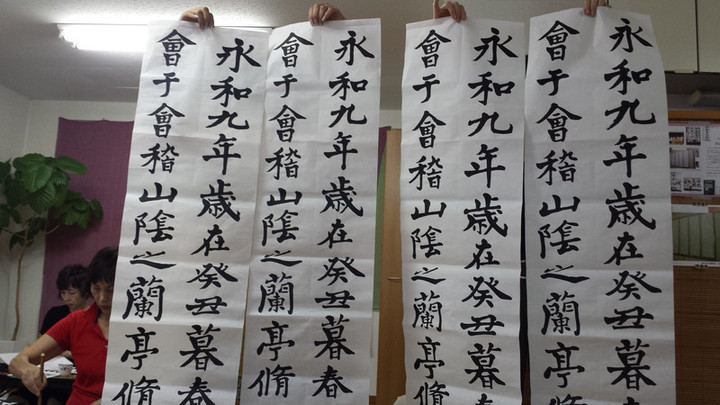 永和九年歳在癸丑暮春
會于會稽山陰之蘭亭脩
永和九年歳在癸丑暮春
會于會稽山陰之蘭亭脩
永和九年歳在癸丑暮春
會于會稽山陰之蘭亭脩
永和九年歳在癸丑暮春
會于會稽山陰之蘭亭脩